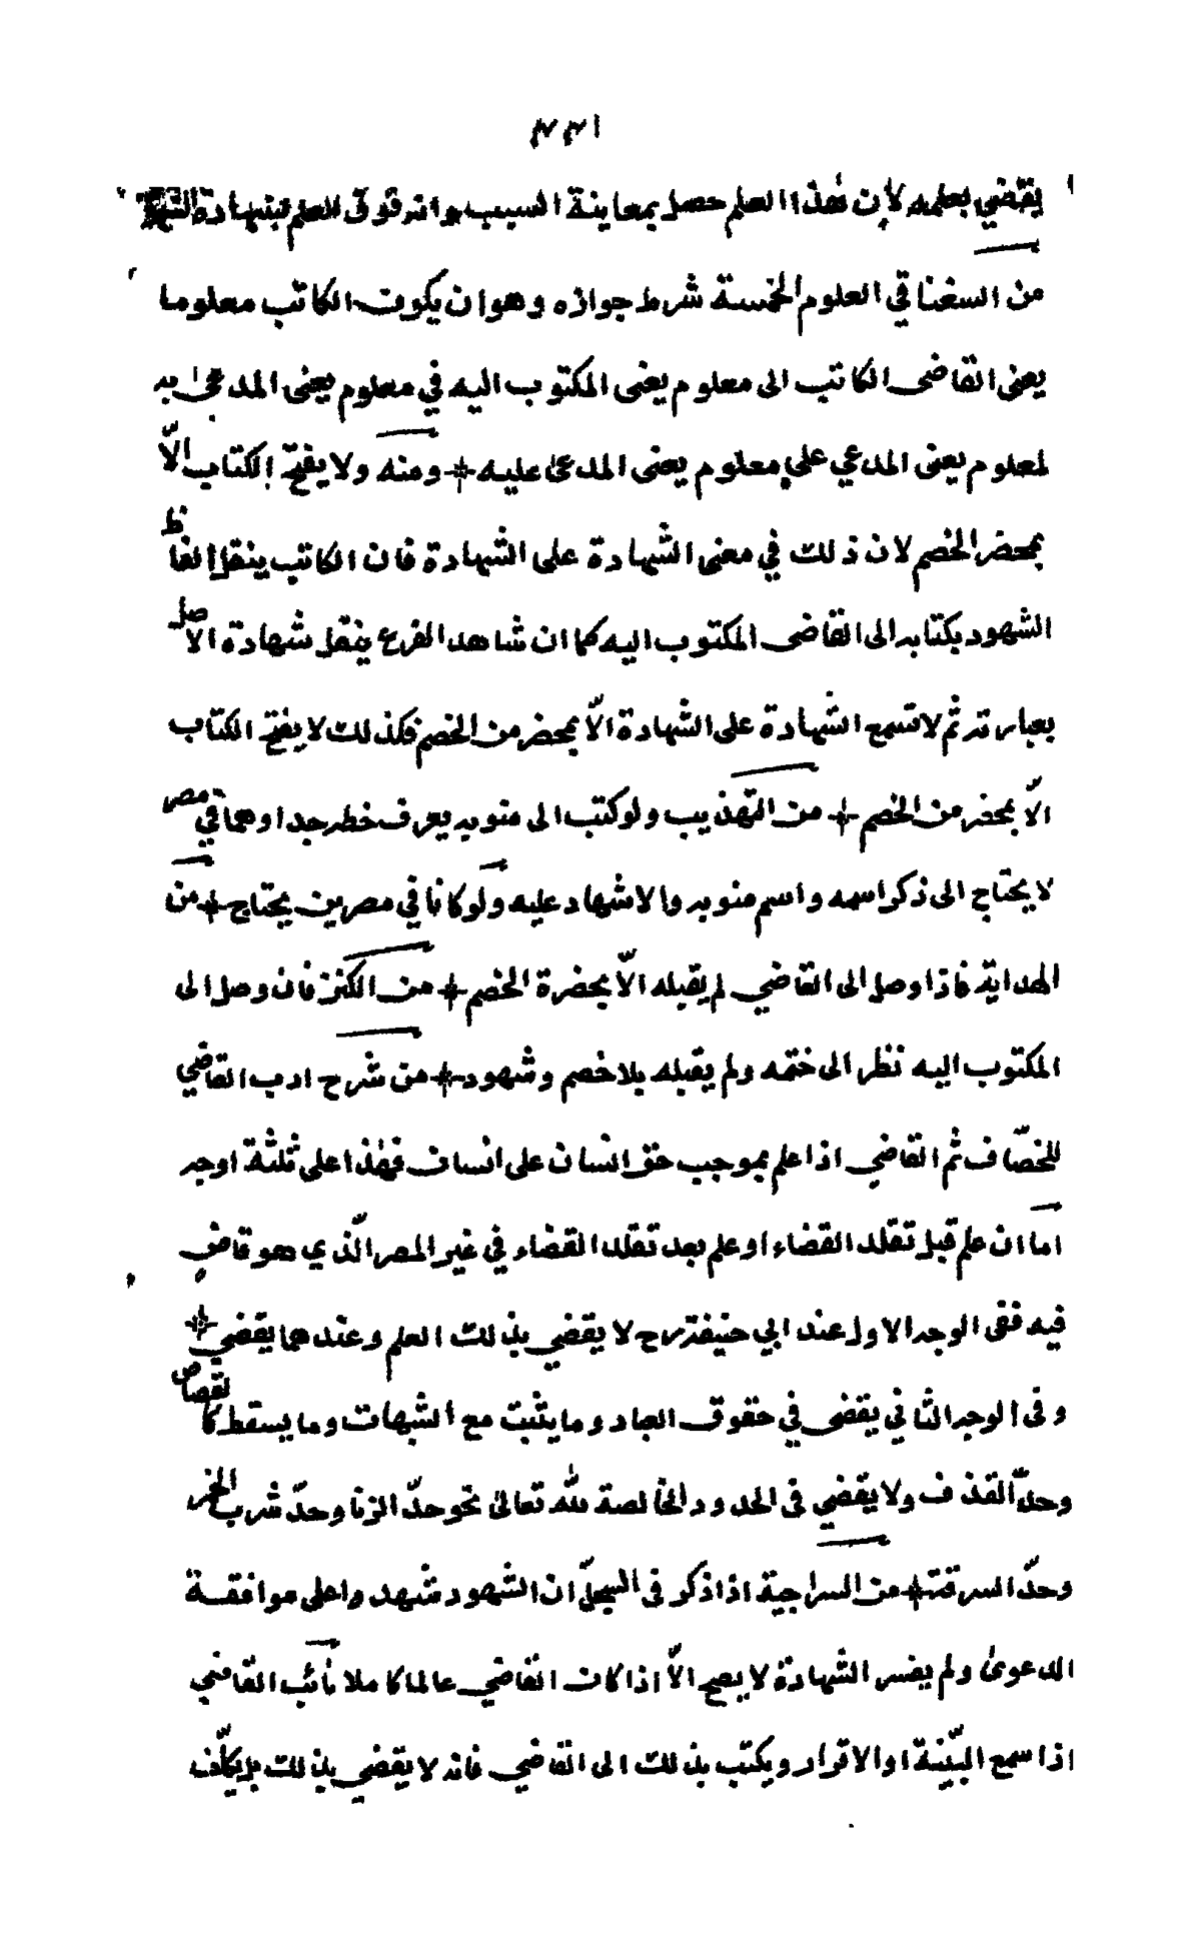 ١٣٣
يقضي بعلمه لأن هذا العلم حصل بمعاينة السبب وانه فوق العلم بشهادة الشهود
من السغناقي العلوم الخمسة شرط جوازه وهو ان يكون الكاتب معلوما
يعنى القاضى الكاتب الى معلوم يعنى المكتوب اليه في معلوم يعنى المدعىٰ به
لمعلوم يعنى المدعي علي معلوم يعنى المدعىٰ عليه ومنه ولا يفتح الكتاب الّا
بمحضر الخصم لان ذلك في معنى الشهادة على الشهادة فان الكاتب ينقل الفاظ
الشهود بكتابه الى القاضى المكتوب اليه كما ان شاهد الفرع ينقل شهادة الاصل
بعبارته ثم لا تسمع الشهادة على الشهادة الّا بمحضر من الخصم فكذلك لا يفتح الكتاب
الّا بمحضر من الخصم من التهذيب ولو كتب الى منوبه يعرف خطه جدا وهما في مصر
لا يحتاج الى ذكر اسمه واسم منوبه والاشهاد عليه ولو كانا في مصرين يحتاج من
الهداية فاذا وصل الى القاضي لم يقبله الّا بحضرة الخصم من الكنز فان وصل الى
المكتوب اليه نظر الى ختمه ولم يقبله بلا خصم وشهود من شرح ادب القاضي
للخصّاف ثم القاضي اذا علم بموجب حق انسان على انسان فهذا على ثلثة اوجه
اما ان علم قبل تقلد القضاء او علم بعد تقلد القضاء في غير المصر الّذي هو قاضٍ
فيه ففى الوجه الاول عند ابي حنيفة رح لا يقضي بذلك العلم وعندهما يقضي
وفى الوجه الثاني يقضى في حقوق العباد وما يثبت مع الشبهات وما يسقط كالقصاص
وحدّ القذف ولا يقضي فى الحدود الخالصة لله تعالىٰ نحو حدّ الزنا وحدّ شرب الخمر
وحدّ السرقة من السراجية اذا ذكر فى السجلّ ان الشهود شهدوا على موافقة
الدعوىٰ ولم يفسر الشهادة لا يصح الّا اذا كان القاضي عالما كاملا نائب القاضي
اذا سمع البيّنة او الاقرار ويكتب بذلك الى القاضي فانه لا يقضي بذلك بل يكلّف